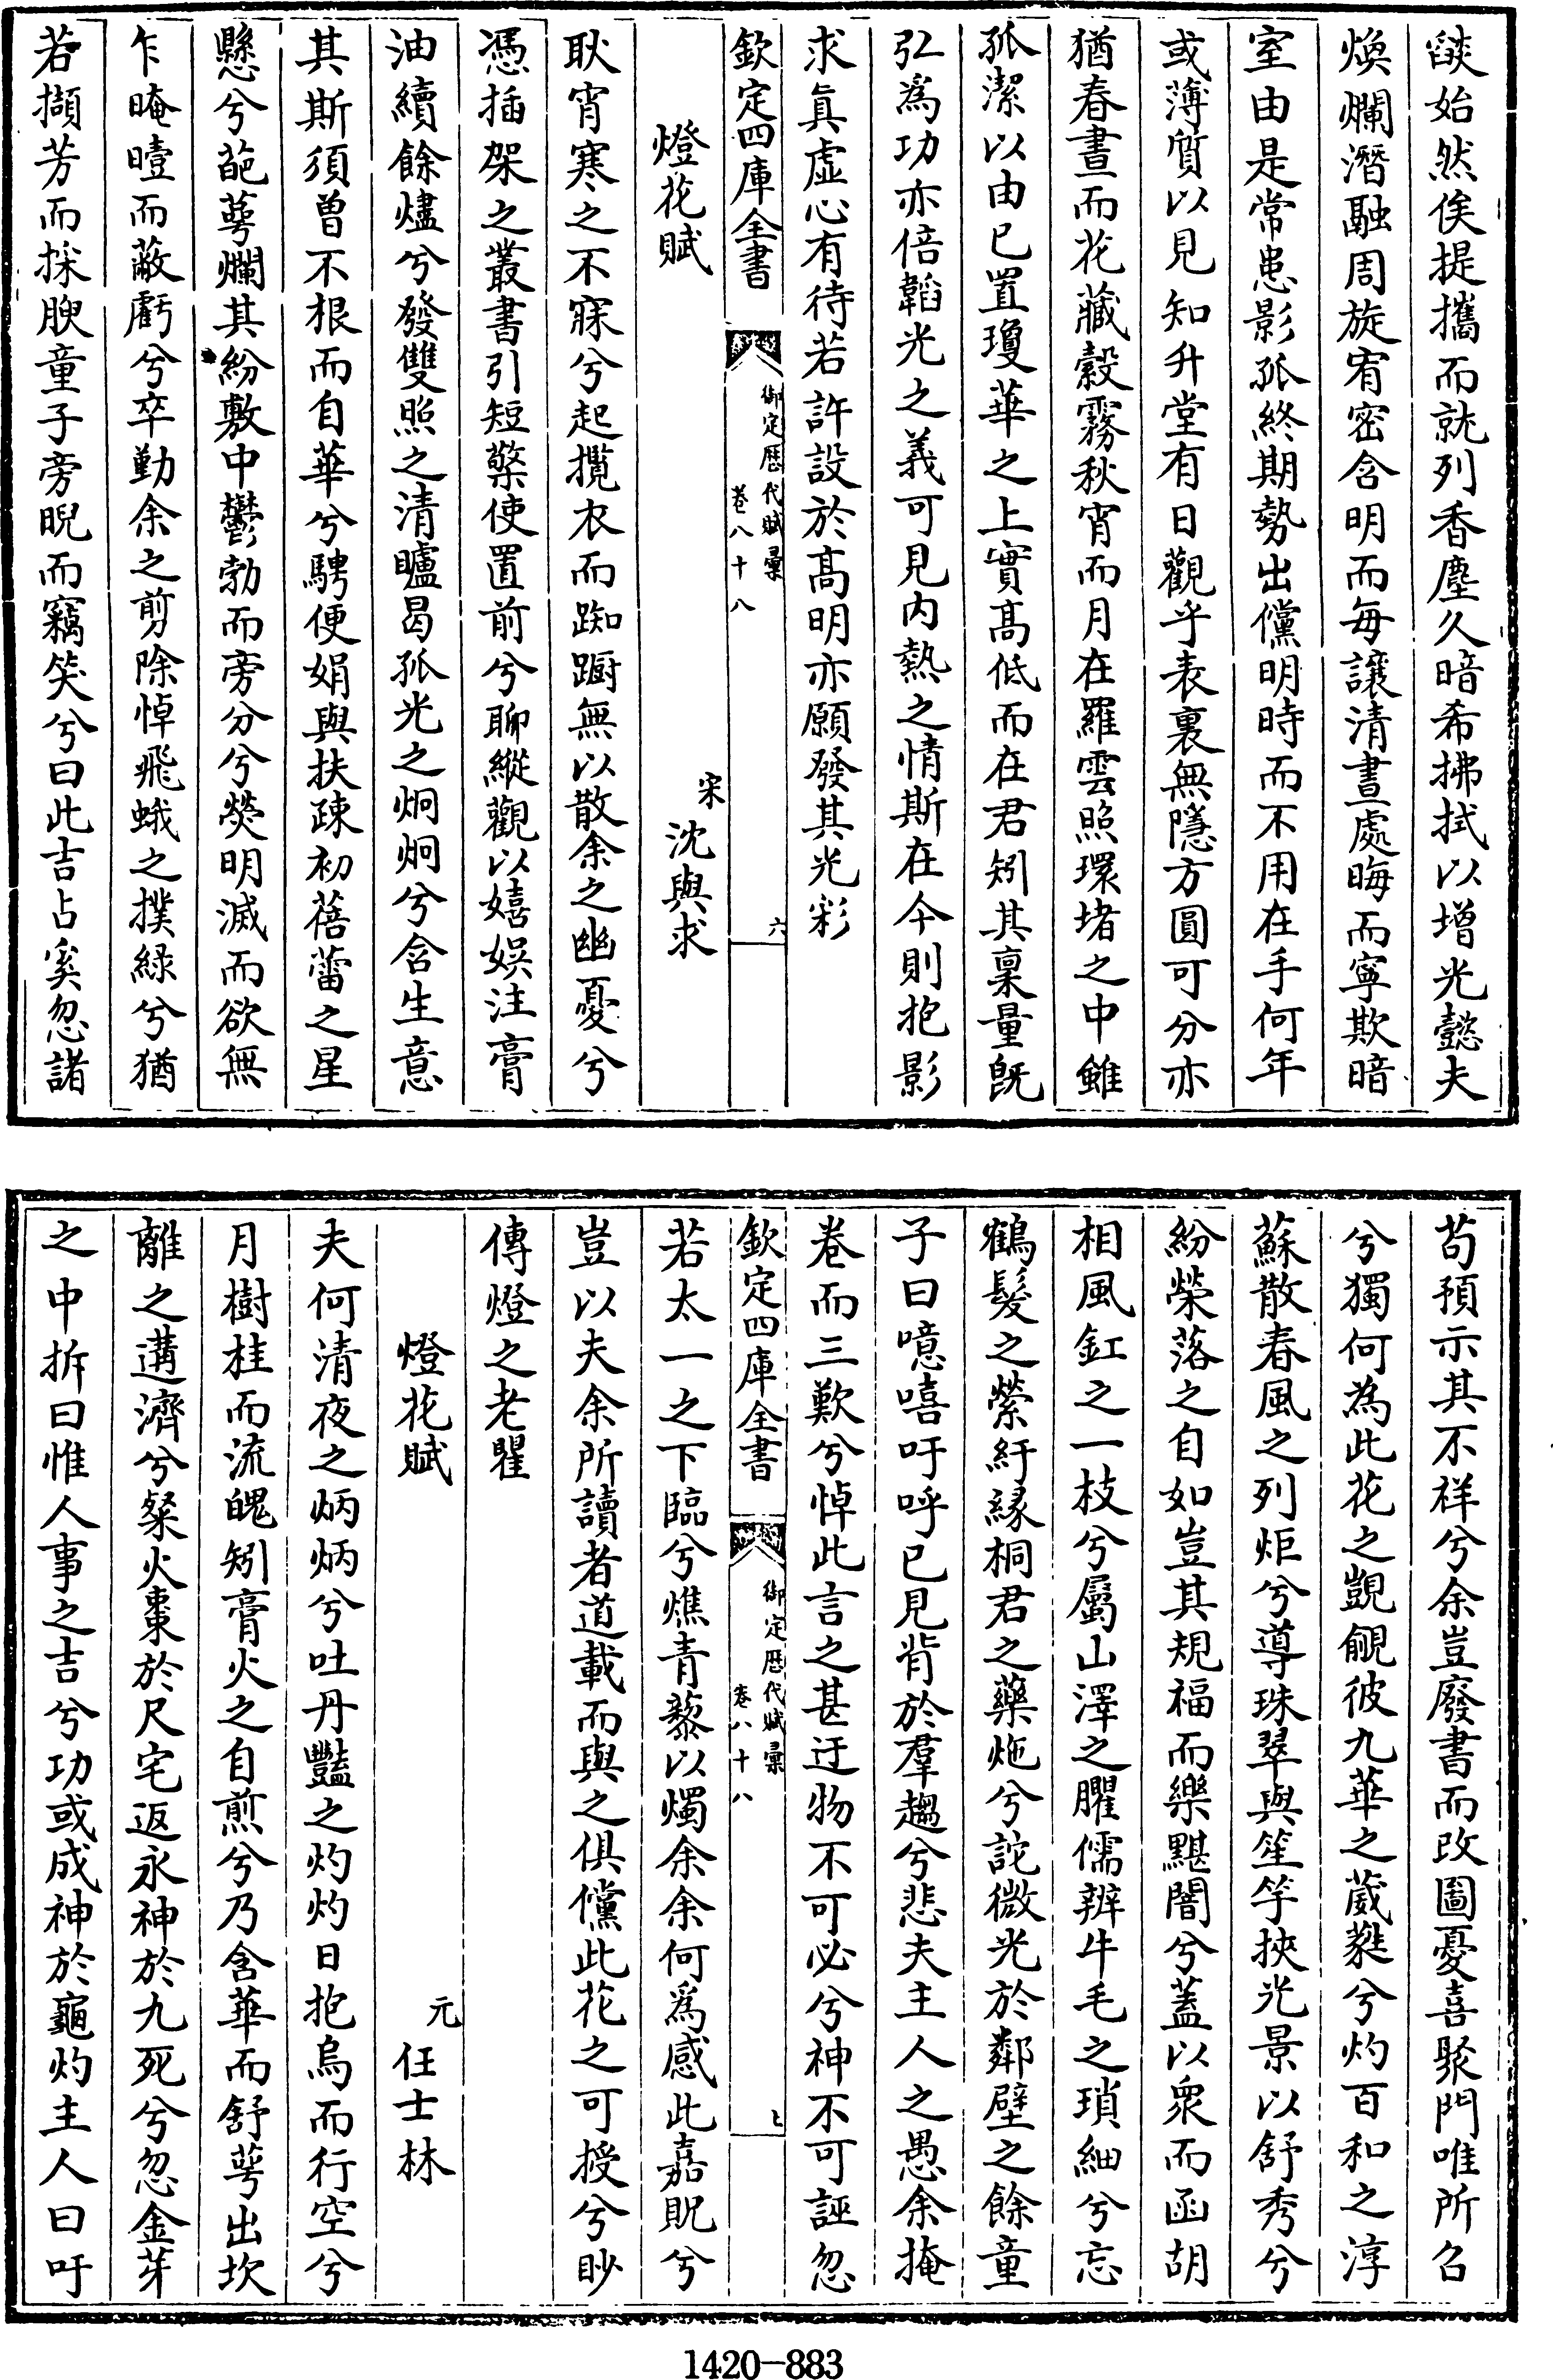 燄始然俟提攜而就列香塵久暗希拂拭以增光懿夫
煥爛潛融周旋宥密含明而每讓清晝處晦而寧欺暗
室由是常患影孤終期勢出儻明時而不用在手何年
或薄質以見知升堂有日觀乎表裏無隱方圓可分亦
猶春晝而花藏縠霧秋宵而月在羅雲照環堵之中雖
孤潔以由已置瓊華之上實髙低而在君矧其稟量旣
弘為功亦倍韜光之義可見内熱之情斯在今則抱影
求眞虚心有待若許設於髙明亦願發其光彩
欽定四庫全書
御定歴代賦彙
卷八十八
六
燈花賦
宋沈與求
耿宵寒之不寐兮起攬衣而踟蹰無以散余之幽憂兮
憑插架之叢書引短檠使置前兮聊縱觀以嬉娱注膏
油續餘燼兮發雙照之清矑曷孤光之炯炯兮含生意
其斯須曽不根而自華兮騁便娟與扶疎初蓓蕾之星
懸兮葩蕚爛其紛敷中鬱勃而旁分兮熒明滅而欲無
乍晻曀而蔽虧兮卒勤余之剪除悼飛蛾之撲緑兮猶
若擷芳而採腴童子旁睨而竊笑兮曰此吉占奚忽諸
茍預示其不祥兮余豈廢書而改圖憂喜聚門唯所召
兮獨何為此花之覬覦彼九華之葳蕤兮灼百和之淳
蘇散春風之列炬兮導珠翠與笙竽挾光景以舒秀兮
紛榮落之自如豈其規福而樂黮闇兮蓋以衆而函胡
相風釭之一枝兮屬山澤之臞儒辨牛毛之瑣細兮忘
鶴髮之縈紆緣桐君之藥炧兮詫微光於鄰壁之餘童
子曰噫嘻吁呼已見背於羣趨兮悲夫主人之愚余掩
卷而三歎兮悼此言之甚迂物不可必兮神不可誣忽
欽定四庫全書
御定歴代賦彙
卷八十八
七
若太一之下臨兮燋青藜以燭余余何為感此嘉貺兮
豈以夫余所讀者道載而與之俱儻此花之可授兮眇
傳燈之老瞿
燈花賦
元任士林
夫何清夜之炳炳兮吐丹豔之灼灼日抱烏而行空兮
月樹桂而流魄矧膏火之自煎兮乃含華而舒蕚出坎
離之遘濟兮粲火棗於尺宅返永神於九死兮忽金芽
之中拆曰惟人事之吉兮功或成神於龜灼主人曰吁
1420-883